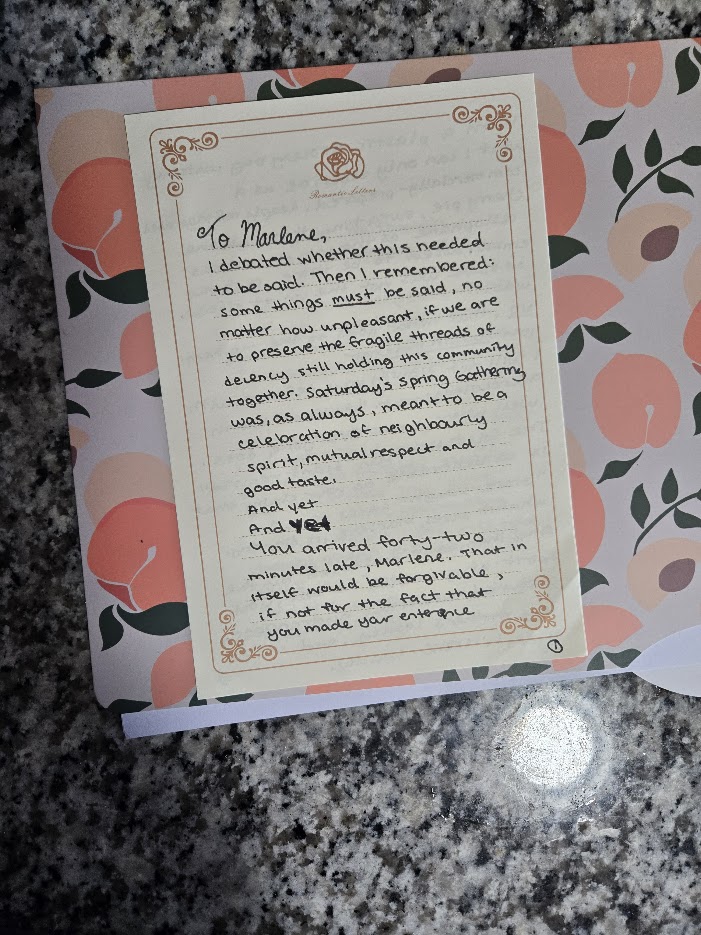 Romantic Letters
To Marlene,
I debated whether this needed
to be said. Then I remembered:
some things must be said, no
matter how unpleasant, if we are
to preserve the fragile threads of
decency still holding this community
together. Saturday's Spring Gathering
was, as always, meant to be a
celebration of neighbourly
spirit, mutual respect and
good taste.
And yet
And yet
You arrived forty-two
minutes late, Marlene. That in
itself would be forgivable,
if not for the fact that
you made your enterence
1